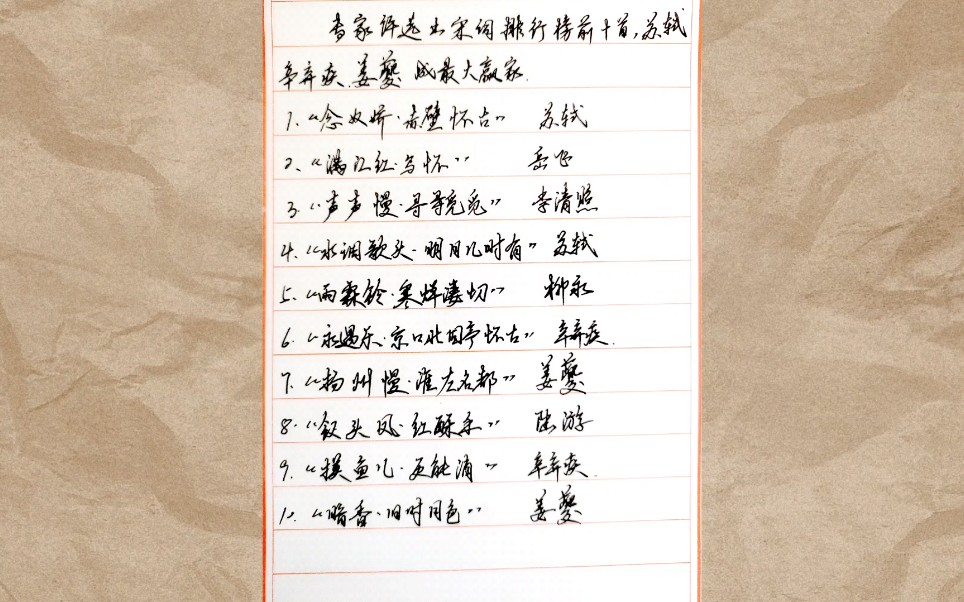 专家评选出宋词排行榜前十首,苏轼
辛弃疾.姜夔 成最大赢家.
1、“念奴娇·赤壁怀古” 苏轼
2、“满江红·写怀” 岳飞
3、“声声慢·寻寻觅觅” 李清照
4、“水调歌头·明月几时有” 苏轼
5、“雨霖铃·寒蝉凄切” 柳永
6、“永遇乐·京口北固亭怀古” 辛弃疾.
7、“扬州慢·淮左名都” 姜夔
8、“钗头凤·红酥手” 陆游
9、“摸鱼儿·更能消” 辛弃疾.
10、“暗香·旧时月色” 姜夔